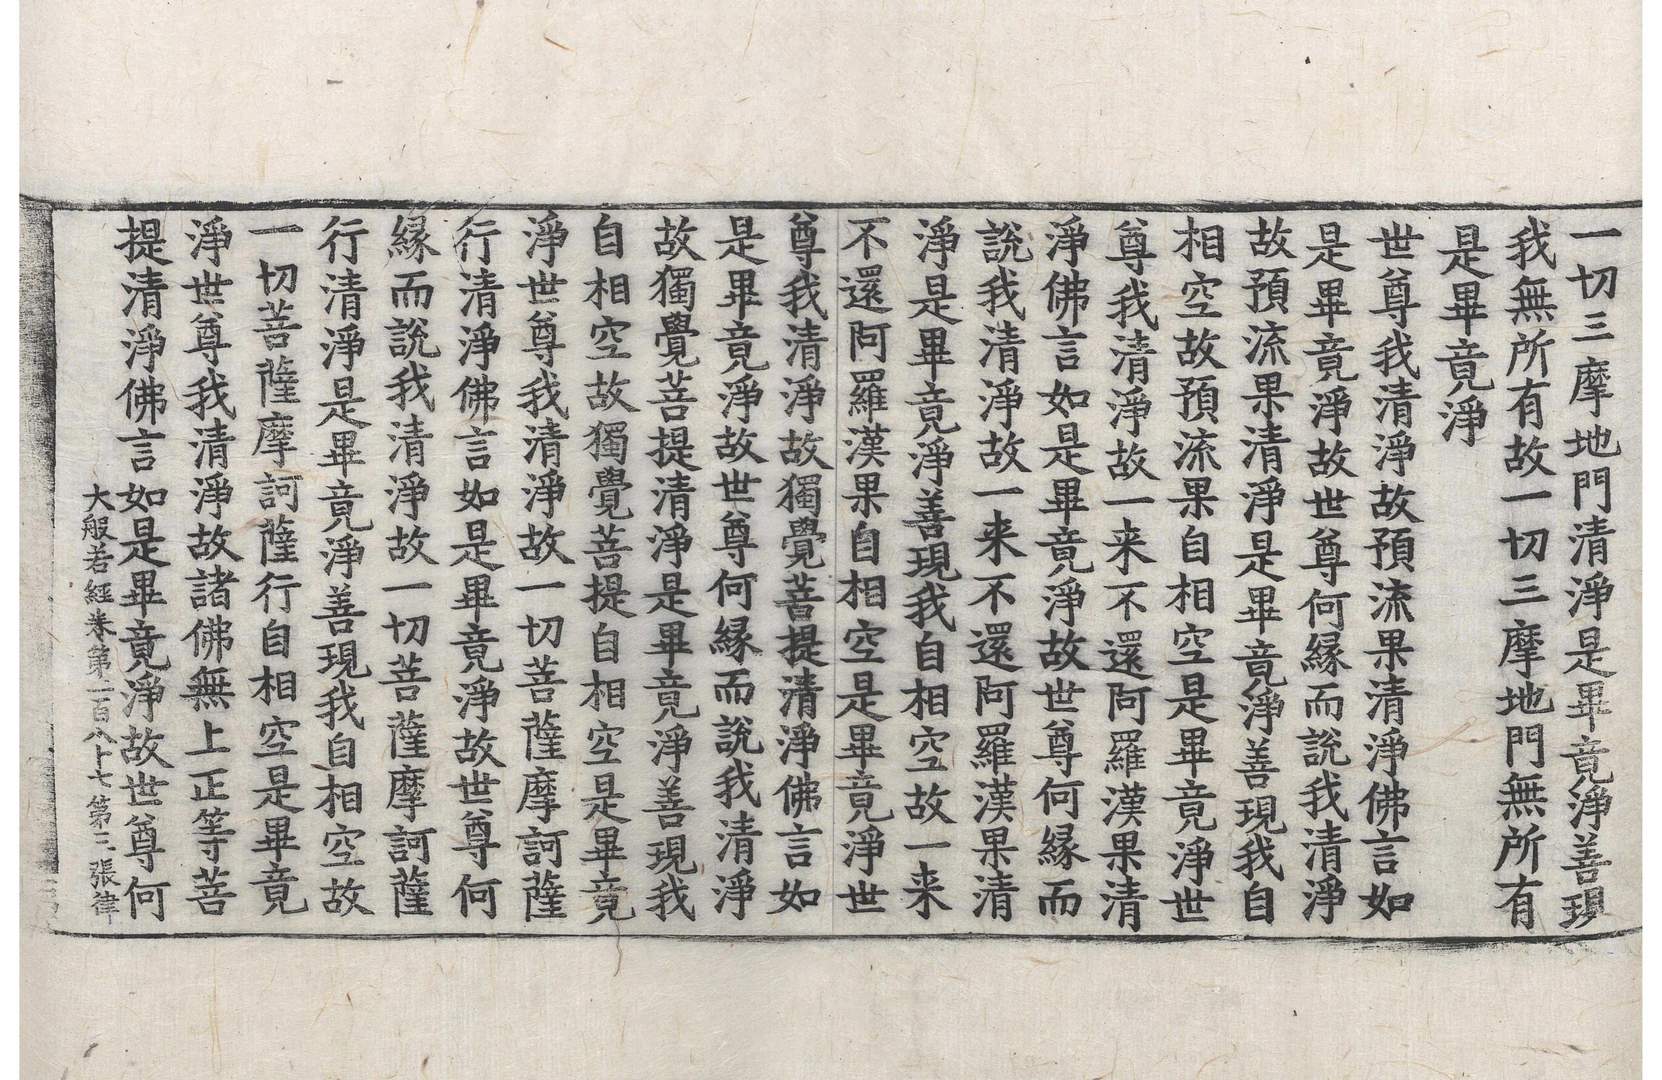 一切三摩地門清淨是畢竟淨善現
我無所有故一切三摩地門無所有
是畢竟淨
世尊我清淨故預流果清淨佛言如
是畢竟淨故世尊何縁而說我清淨
故預流果清淨是畢竟淨善現我自
相空故預流果自相空是畢竟淨世
尊我清淨故一来不還阿羅漢果清
淨佛言如是畢竟淨故世尊何縁而
說我清淨故一来不還阿羅漢果清
淨是畢竟淨善現我自相空故一来
不還阿羅漢果自相空是畢竟淨世
尊我清淨故獨覺菩提清淨佛言如
是畢竟淨故世尊何縁而說我清淨
故獨覺菩提清淨是畢竟淨善現我
自相空故獨覺菩提自相空是畢竟
淨世尊我清淨故一切菩薩摩訶薩
行清淨佛言如是畢竟淨故世尊何
縁而說我清淨故一切菩薩摩訶薩
行清淨是畢竟淨善現我自相空故
一切菩薩摩訶薩行自相空是畢竟
淨世尊我清淨故諸佛無上正等菩
提清淨佛言如是畢竟淨故世尊何
大般若經卷第二百八十七第三張律